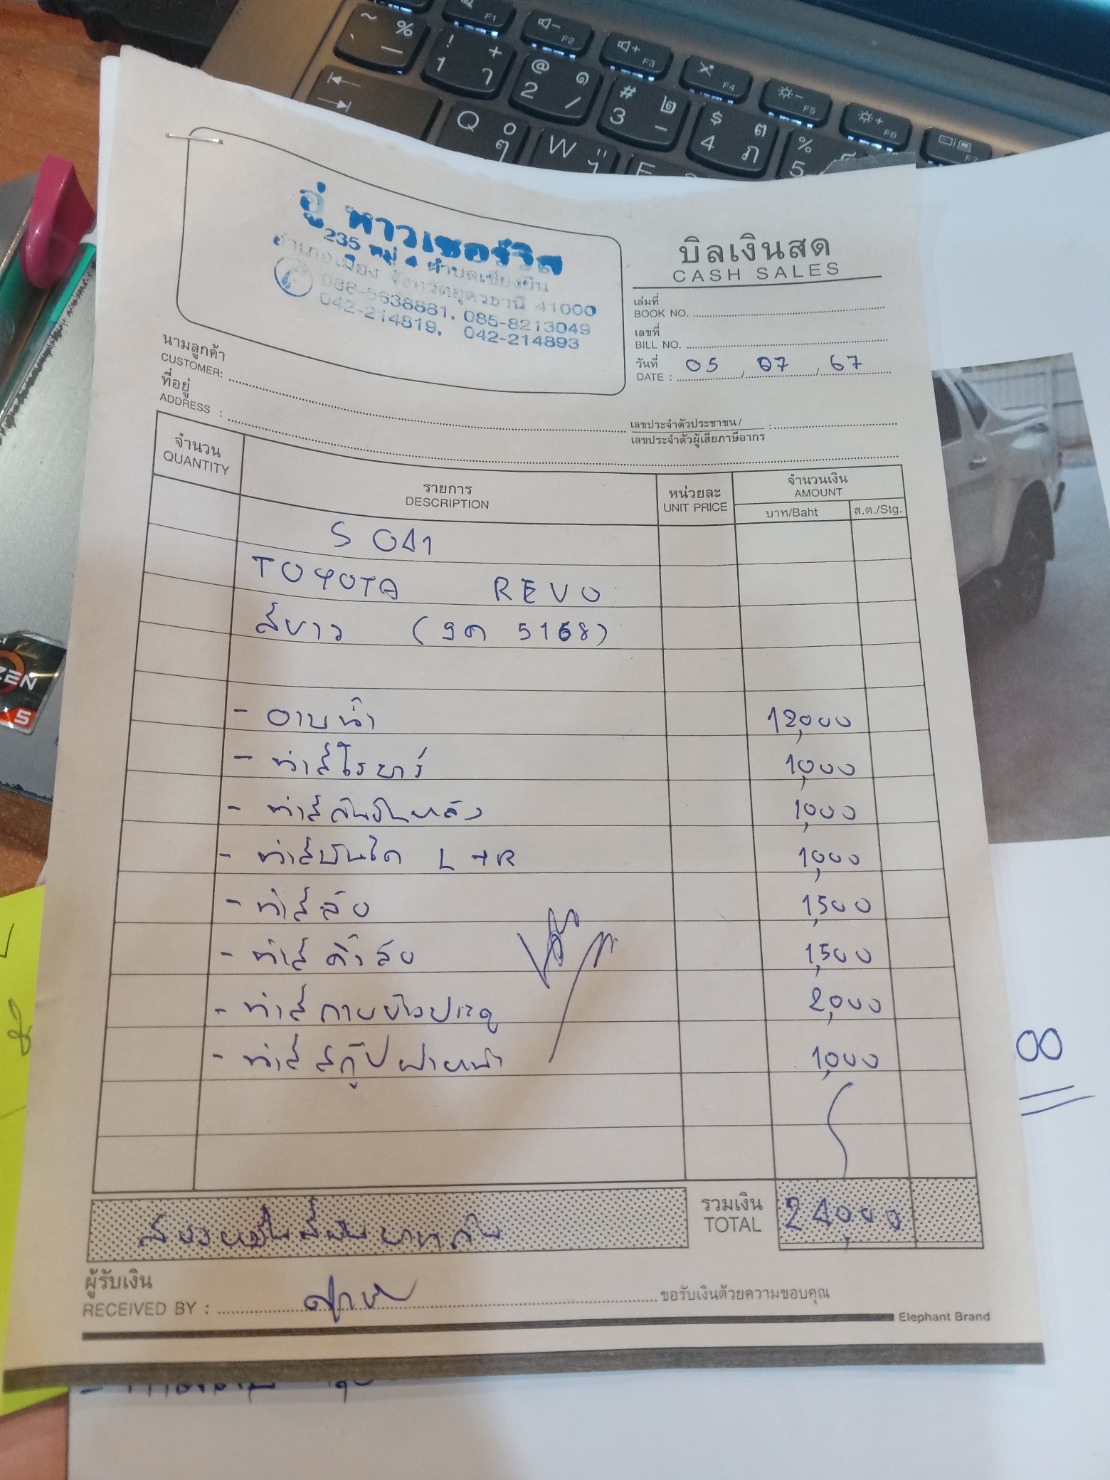 อู่ หาวเซอร์วิส
235 หมู่ 4 ตำบลเชียงยืน
อำเภอเมือง จังหวัดอุดรธานี 41000
088-5638881, 085-8213049
042-214819, 042-214893
บิลเงินสด
CASH SALES
เล่มที่
BOOK NO.
เลขที่
BILL NO.
วันที่
DATE : 05 / 07 / 67
นามลูกค้า
CUSTOMER:
ที่อยู่
ADDRESS :
เลขประจำตัวประชาชน/
เลขประจำตัวผู้เสียภาษีอากร
จำนวน
QUANTITY
รายการ
DESCRIPTION
หน่วยละ
UNIT PRICE
จำนวนเงิน
AMOUNT
บาท/Baht
ส.ต./Stg.
S 041
TOYOTA REVO
สีขาว ( 5168)
- อาบน้ำ 12,000
- ทำสีโรบาร์ 1,000
- ทำสีกันชนหลัง 1,000
- ทำสีบันได L+R 1,000
- ทำสี 1,500
- ทำสี 1,500
- ทำสี 2,000
- ทำสีสกู๊ปฝาหน้า 1,000
รวมเงิน
TOTAL 24,000
สองหมื่นสี่พันบาทถ้วน
ผู้รับเงิน
RECEIVED BY :
ขอรับเงินด้วยความขอบคุณ
Elephant Brand
00
ZEN
5